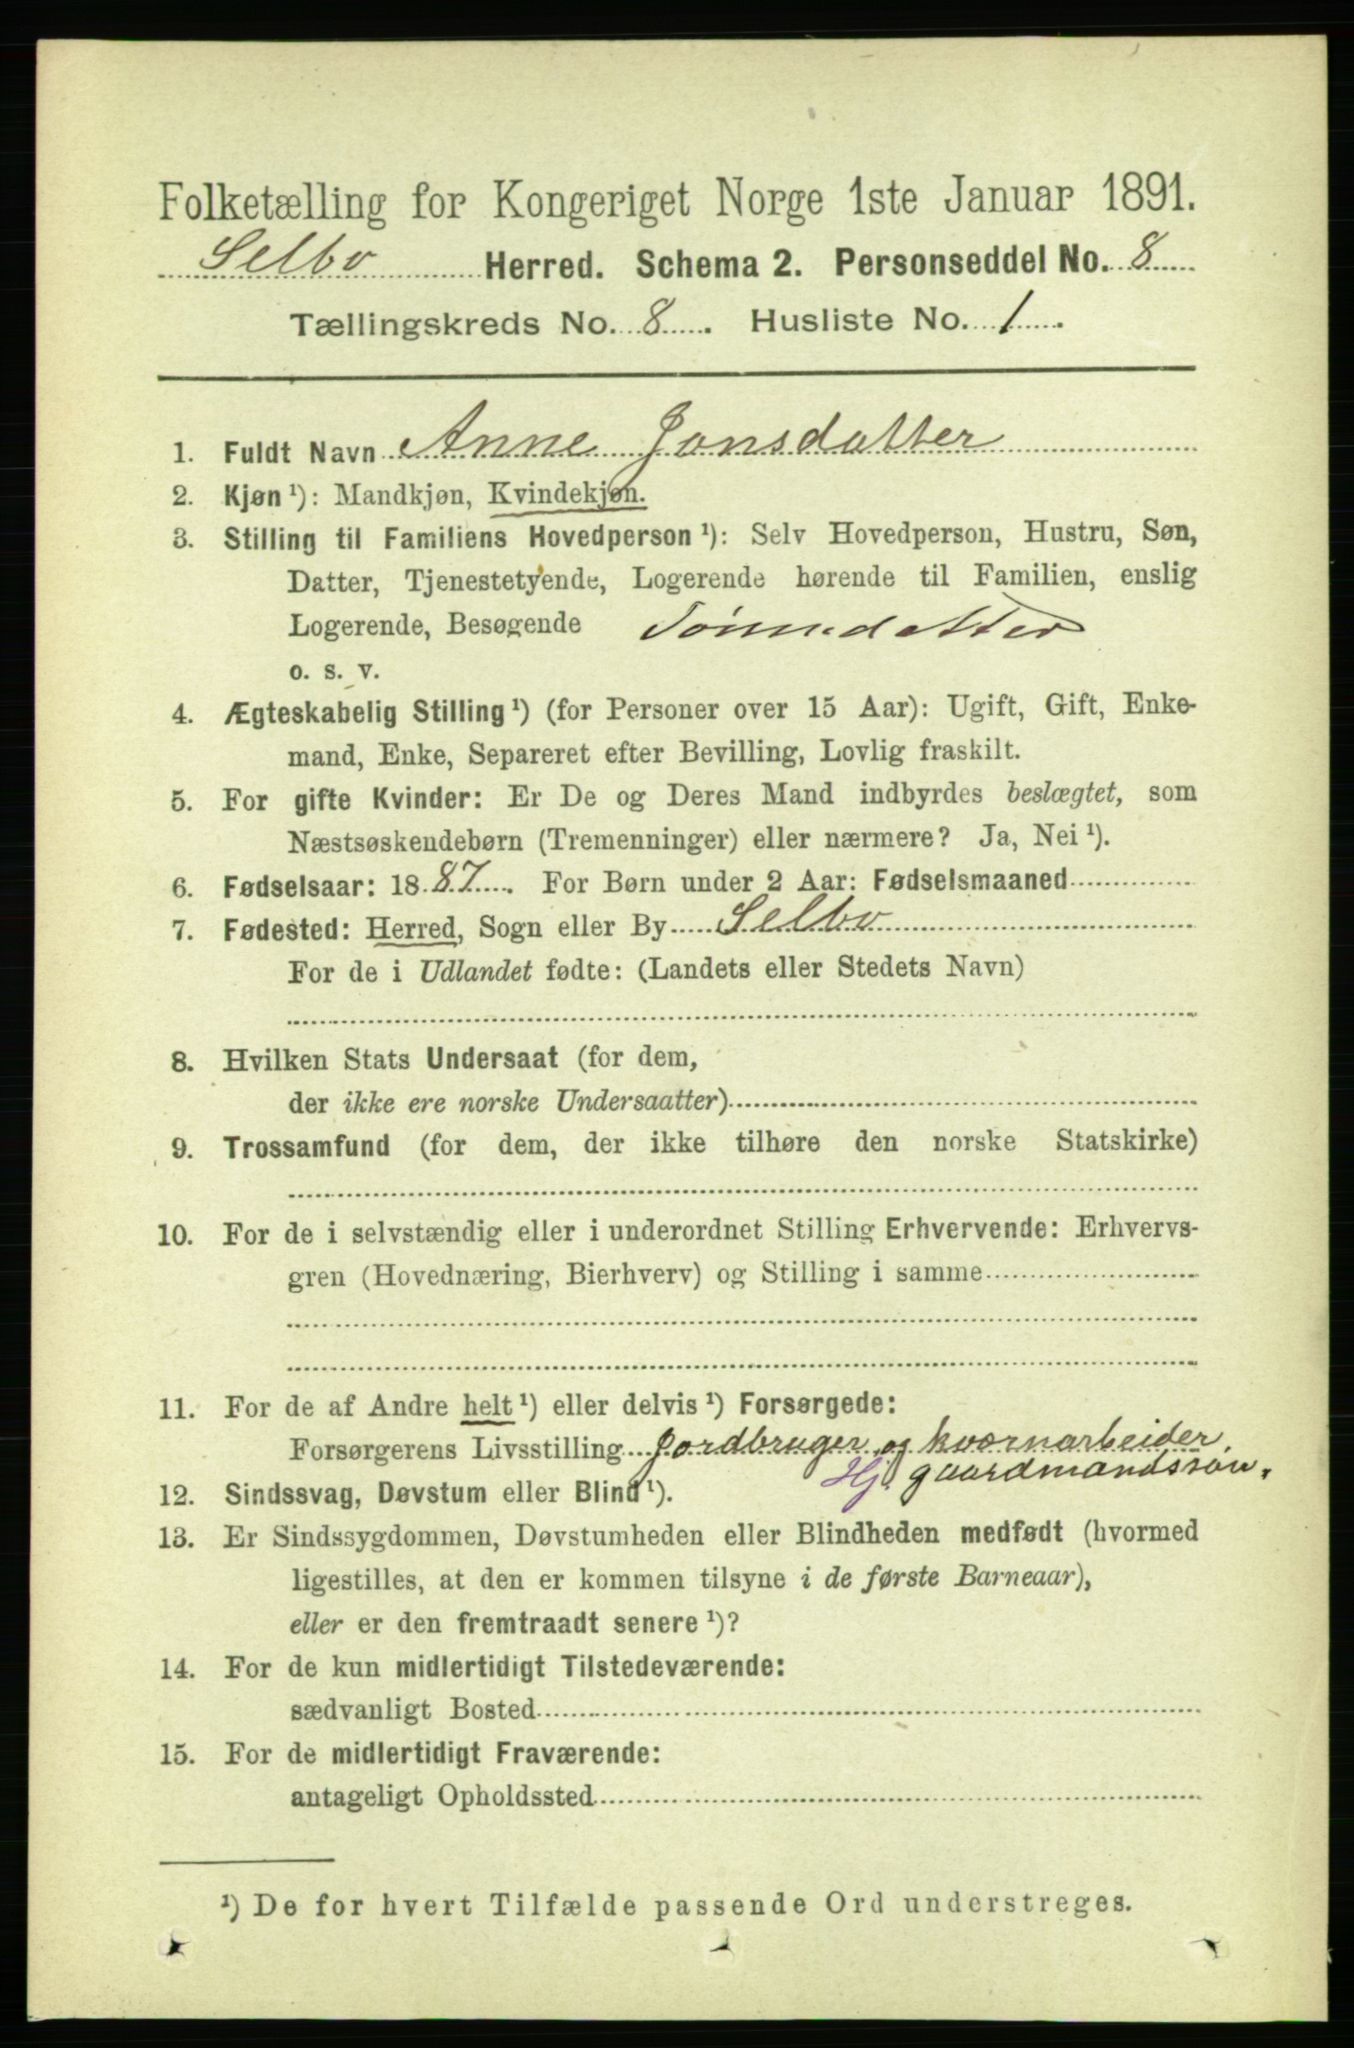 Folketælling for Kongeriget Norge 1ste Januar 1891.
Selbo Herred. Schema 2. Personseddel No. 8
Tællingskreds No. 8. Husliste No. 1.
1. Fuldt Navn Anne Jonsdatter
2. Kjøn ¹): Mandkjøn, Kvindekjøn.
3. Stilling til Familiens Hovedperson ¹): Selv Hovedperson, Hustru, Søn,
Datter, Tjenestetyende, Logerende hørende til Familien, enslig
Logerende, Besøgende Sønnedatter
o. s. v.
4. Ægteskabelig Stilling ¹) (for Personer over 15 Aar): Ugift, Gift, Enke-
mand, Enke, Separeret efter Bevilling, Lovlig fraskilt.
5. For gifte Kvinder: Er De og Deres Mand indbyrdes beslægtet, som
Næstsøskendebørn (Tremenninger) eller nærmere? Ja, Nei ¹).
6. Fødselsaar: 1887. For Børn under 2 Aar: Fødselsmaaned
7. Fødested: Herred, Sogn eller By Selbo
For de i Udlandet fødte: (Landets eller Stedets Navn)
8. Hvilken Stats Undersaat (for dem,
der ikke ere norske Undersaatter)
9. Trossamfund (for dem, der ikke tilhøre den norske Statskirke)
10. For de i selvstændig eller i underordnet Stilling Erhvervende: Erhvervs-
gren (Hovednæring, Bierhverv) og Stilling i samme
11. For de af Andre helt ¹) eller delvis ¹) Forsørgede:
Forsørgerens Livsstilling Jordbruger og kværnarbeider,
Hj. gaardmandssøn.
12. Sindssvag, Døvstum eller Blind ¹).
13. Er Sindssygdommen, Døvstumheden eller Blindheden medfødt (hvormed
ligestilles, at den er kommen tilsyne i de første Barneaar),
eller er den fremtraadt senere ¹)?
14. For de kun midlertidigt Tilstedeværende:
sædvanligt Bosted
15. For de midlertidigt Fraværende:
antageligt Opholdssted
¹) De for hvert Tilfælde passende Ord understreges.